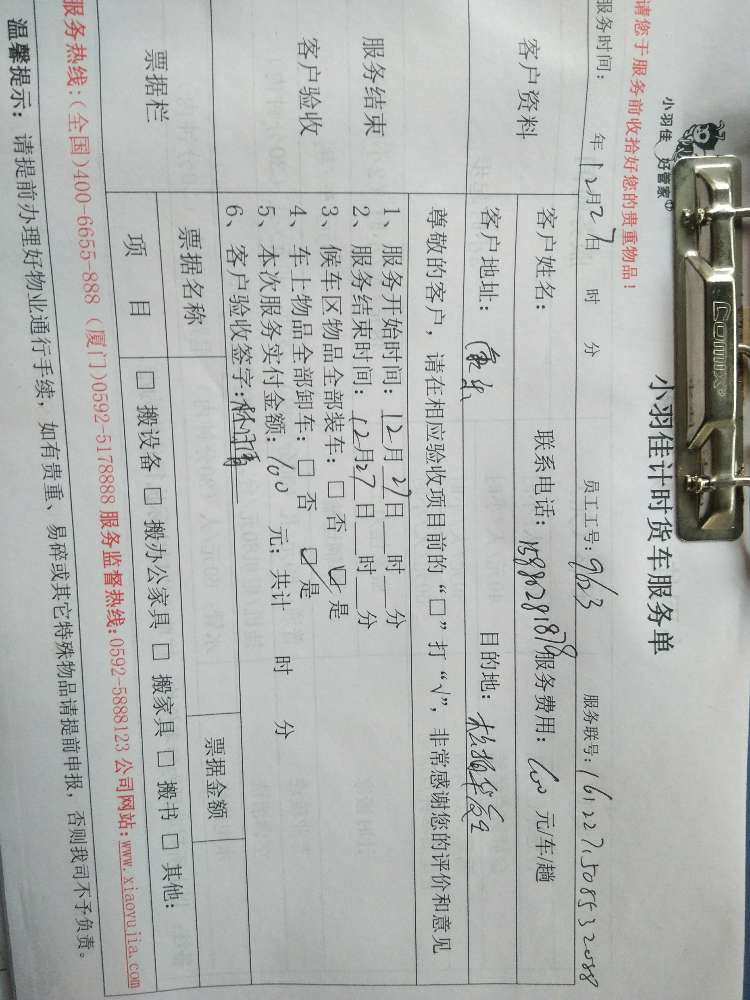 Comix
小羽佳 好管家
小羽佳计时货车服务单
请您于服务前收拾好您的贵重物品!
服务时间: 年12月27日 时 分 员工工号:963 服务联号:1612271508532088
客户资料
客户姓名: 联系电话: 服务费用: 元/车/趟
客户地址: 目的地:
尊敬的客户，请在相应验收项目前的“□”打“√”，非常感谢您的评价和意见
服务结束
客户验收
1、服务开始时间:12月27日 时 分
2、服务结束时间:12月27日 时 分
3、候车区物品全部装车:□ 否 ☑ 是
4、车上物品全部卸车:□ 否 ☑ 是
5、本次服务实付金额:100 元;共计 时 分
6、客户验收签字:
票据栏
票据名称 票据金额
项 目 □ 搬设备 □ 搬办公家具 □ 搬家具 □ 搬书 □ 其他:
服务热线:(全国)400-6655-888 (厦门)0592-5178888 服务监督热线:0592-5888123 公司网站:www.xiaoyujia.com
温馨提示: 请提前办理好物业通行手续，如有贵重、易碎或其它特殊物品请提前申报，否则我司不予负责。